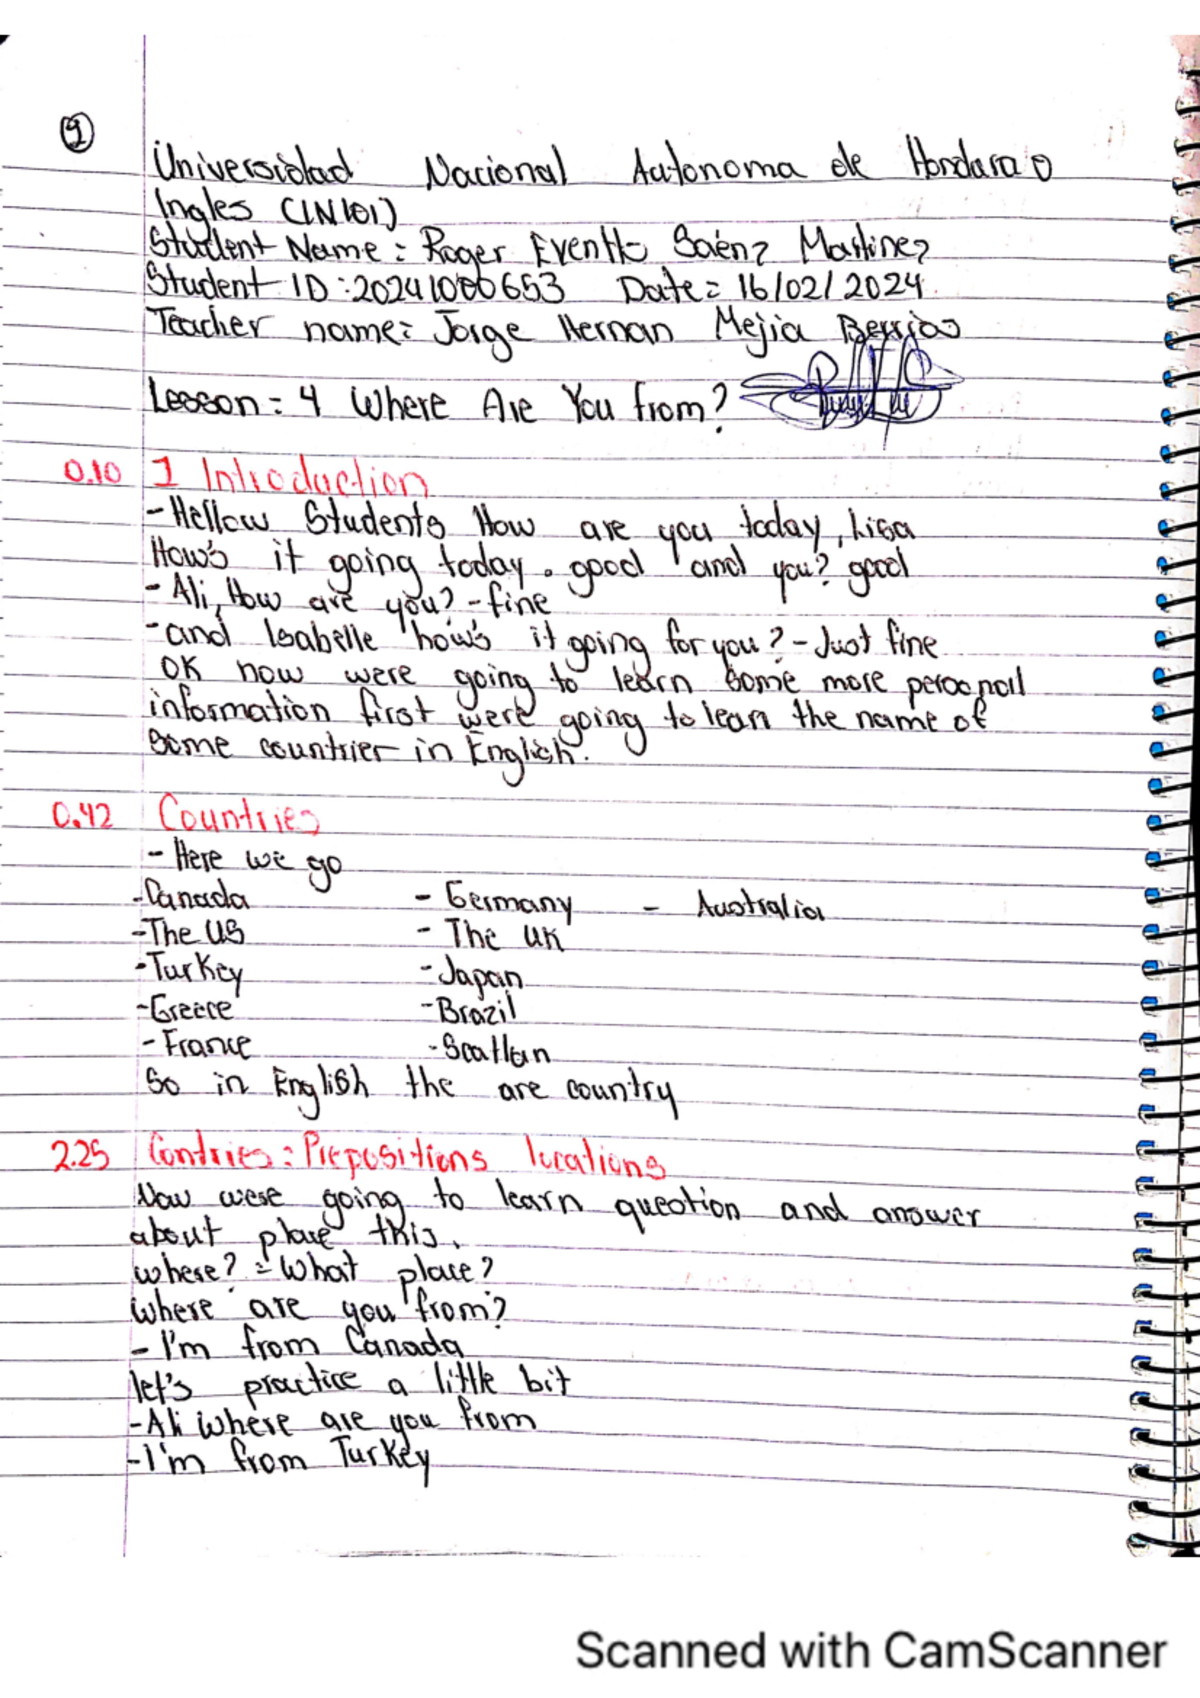 1
Universidad Nacional Autonoma de Honduras
Ingles (IN101)
Student Name: Roger Eventh Saénz Martinez
Student ID: 20241000653 Date= 16/02/2024
Teacher name= Jorge Hernan Mejia Berrios
Lesson = 4 Where Are You from?
0.10 1 Introduction
-Hellow Students How are you today, Lisa
How's it going today. good and you? good
- Ali, How are you? -fine
-and Isabelle how's it going for you? - Just fine
OK now were going to learn some more personal
information first were going to lean the name of
some countrier in English.
0.42 Countries
- Here we go
-Canada - Germany - Australia
-The US - The UK
-Turkey -Japan
-Greece -Brazil
-France -Scatlan
So in English the are country
2.25 Contries: Prepositions locations
Now were going to learn question and answer
about place this.
where? = What place?
where are you from?
- I'm from Canada
let's practice a little bit
-Ali where are you from
-I'm from Turkey
Scanned with CamScanner